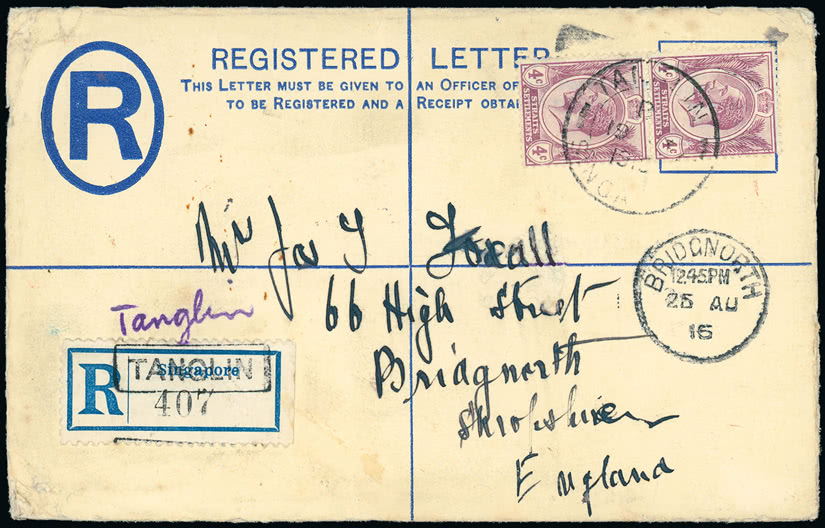 REGISTERED LETTER
THIS LETTER MUST BE GIVEN TO AN OFFICER OF
TO BE REGISTERED AND A RECEIPT OBTAI
R
4c
STRAITS
SETTLEMENTS
4c
4c
STRAITS
SETTLEMENTS
4c
Mr Jas T Foxall
66 High Street
Bridgnorth
Shropshire
England
BRIDGNORTH
12.45PM
25 AU
16
Tanglin
R
Singapore
TANGLIN
407